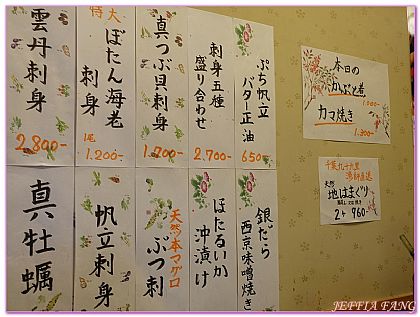 雲丹刺身
2,800-
特大
ぼたん海老
刺身
1尾
1.200-
真つぶ貝刺身
1,700-
刺身五種
盛り合わせ
2,700-
ぷち帆立
バター正油
650
本日の
かぶと煮
1.000-
カマ焼き
1.300-
千葉九十九里
漁師直送
天然
地はまぐり
2ヶ 960-
真牡蠣
帆立刺身
天然本マグロ
ぶつ刺
ほたるいか
沖漬け
銀だら
西京味噌焼き
JEFFIA FANG